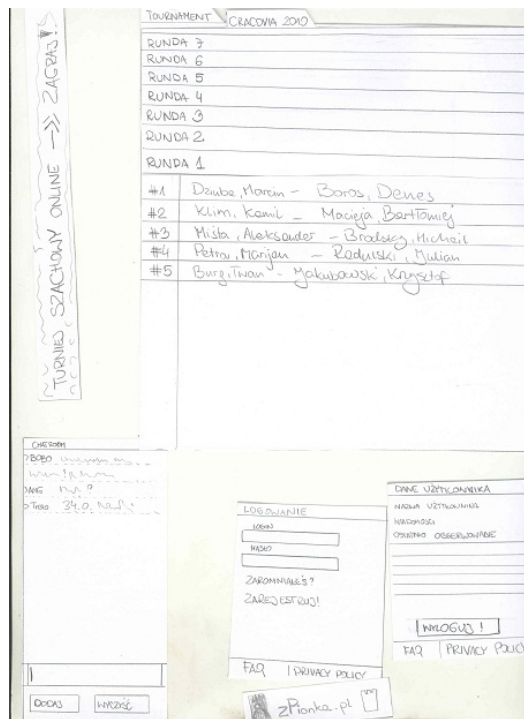 TURNIEJ SZACHOWY ONLINE →» ZAGRAJ!
TOURNAMENT
CRACOVIA 2010
RUNDA 7
RUNDA 6
RUNDA 5
RUNDA 4
RUNDA 3
RUNDA 2
RUNDA 1
#1 Dziuba, Marcin - Boros, Denes
#2 Klim, Kamil - Macieja, Bartłomiej
#3 Miśta, Aleksander - Brodsky, Michail
#4 Petrov, Marijan - Radulski, Julian
#5 Burg, Twan - Jakubowski, Krzysztof
CHATROOM
>BOBO
DODAJ
WYCZYŚĆ
LOGOWANIE
LOGIN
HASŁO
ZAPOMNIAŁEŚ?
ZAREJESTRUJ!
FAQ | PRIVACY POLICY
zPionka.pl
DANE UŻYTKOWNIKA
NAZWA UŻYTKOWNIKA
WIADOMOŚCI
OSTATNIO OBSERWOWANE
WYLOGUJ!
FAQ | PRIVACY POLICY